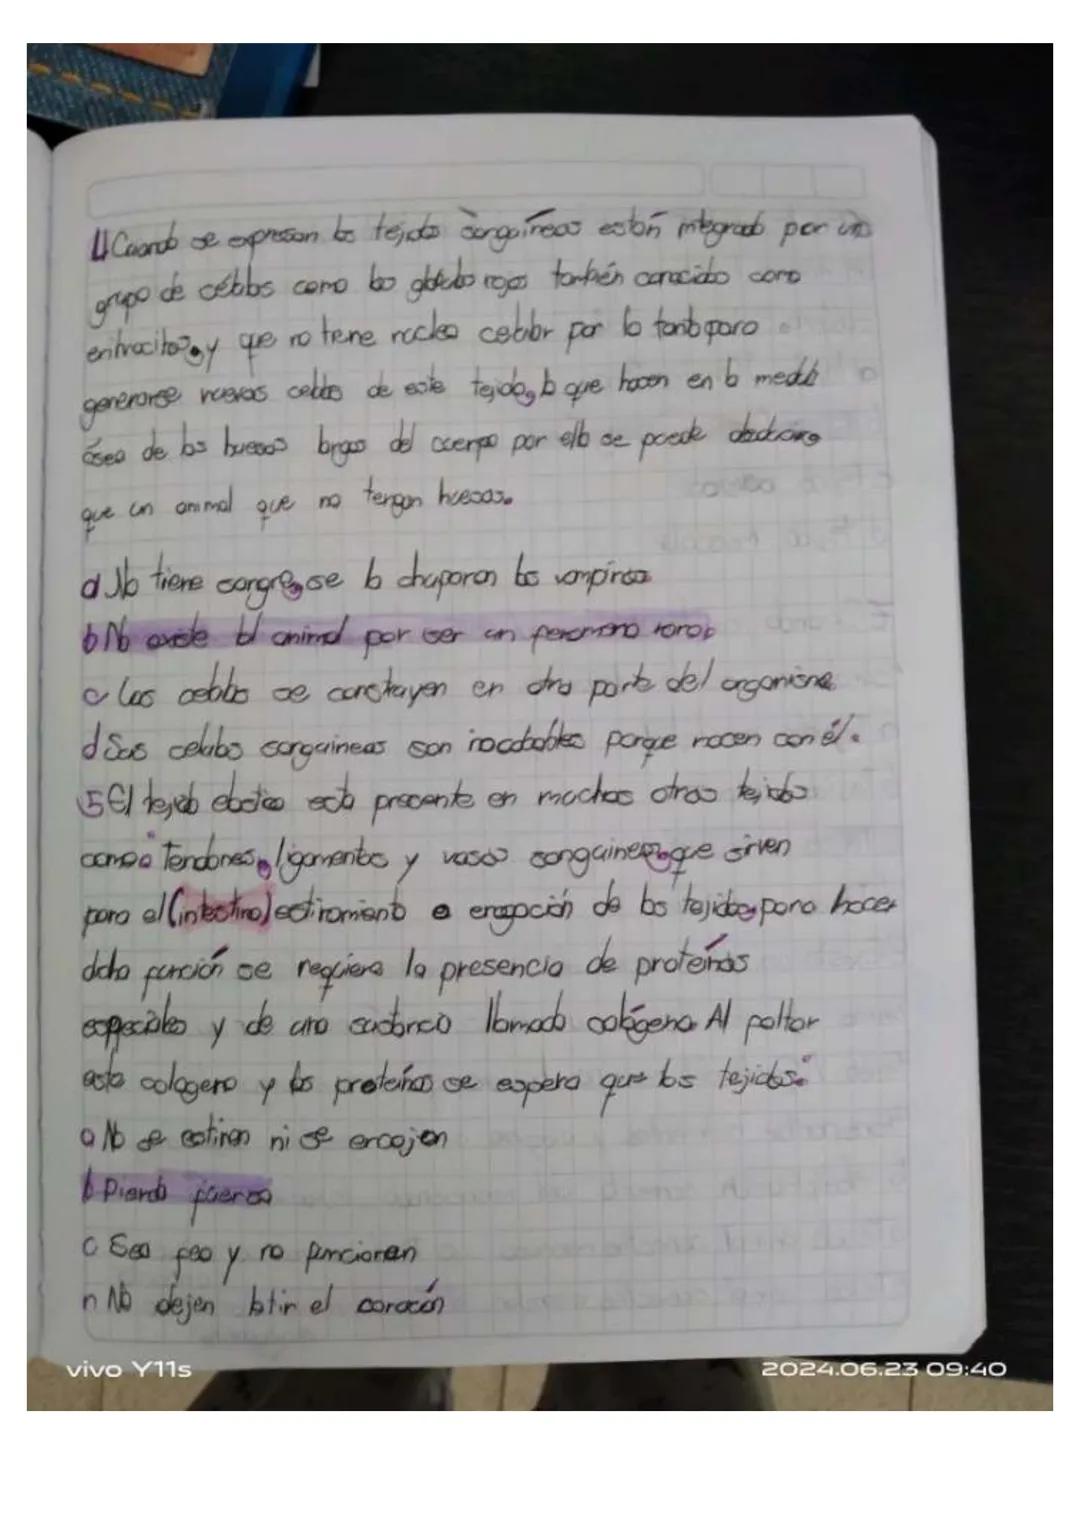 4 Cuando se expresan los tejidos sanguíneos están integrado por un
grupo de células como los glóbulo rojos también conocido como
eritrocitos, y que no tiene nucleo celular por lo tanto para
generarse nuevas celulas de este tejido, lo que hacen en la medula
ósea de los huesos largos del cuerpo por ello se puede
que un animal que no tengan huesos.
a No tiene sangre, se la chuparon los vampiros
b No existe el animal por ser un fenomeno raro.
c Las celulas se construyen en otra parte del organismo
d Sus celulas sanguineas son inacabables porque nacen con él.
5 El tejido elastico esta presente en muchos otros tejidos
como Tendones, ligamentos y vasos sanguineos, que sirven
para el (intestino) estiramiento e de los tejidos, para hacer
dicha función se requiere la presencia de proteínas
especiales y de una sustancia llamado colágeno. Al faltar
este colageno y las proteínas se espera que los tejidos:
a No se estiren ni se encojen
b Pierda fuerza
c Sea feo y no funcionen
n No dejen latir el corazón
vivo Y11s
2024.06.23 09:40